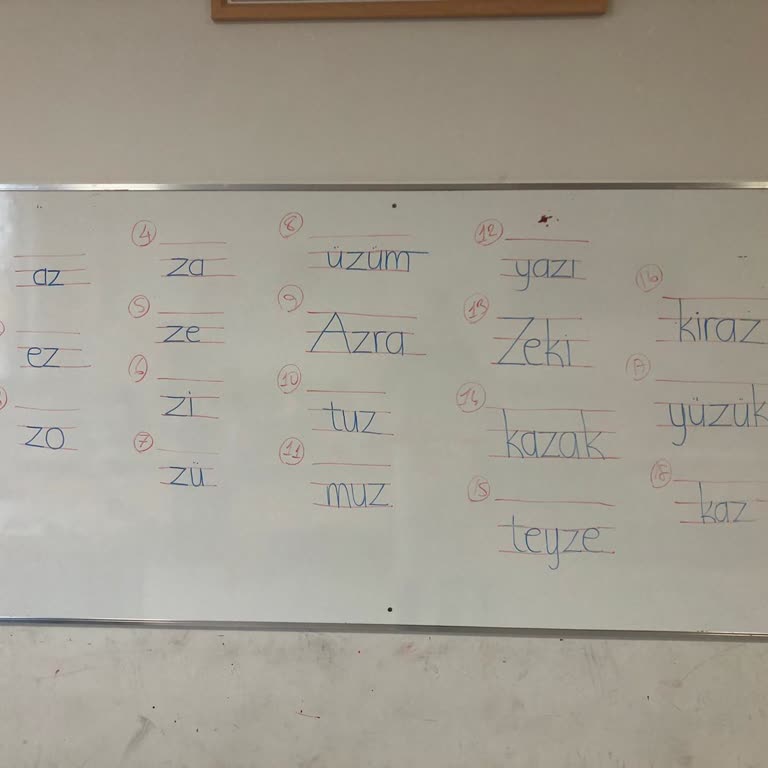 az
ez
zo
4
za
5
ze
6
zi
7
zü
8
üzüm
9
Azra
10
tuz
11
muz
12
yazı
13
Zeki
14
kazak
15
teyze
16
kiraz
17
yüzük
18
kaz